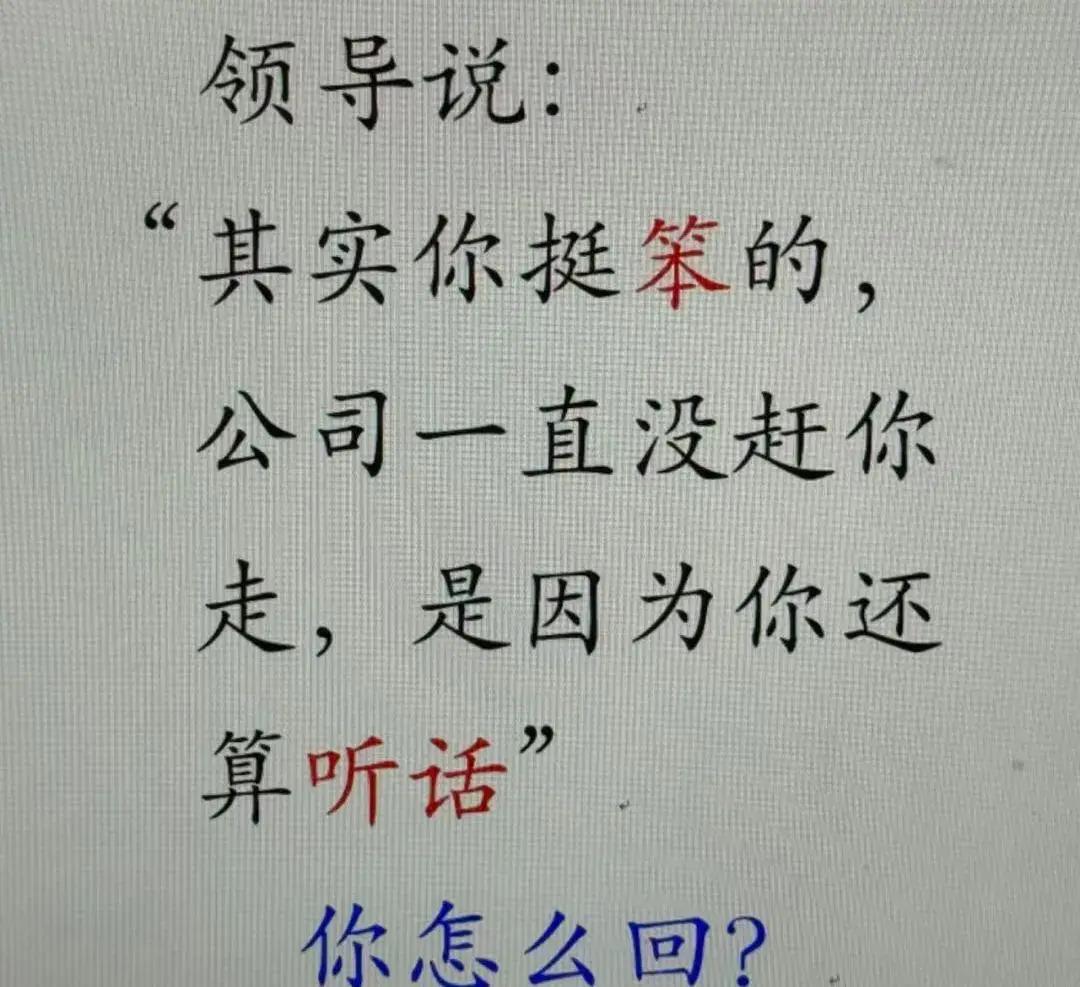 领导说：
“其实你挺笨的，
公司一直没赶你
走，是因为你还
算听话”
你怎么回？